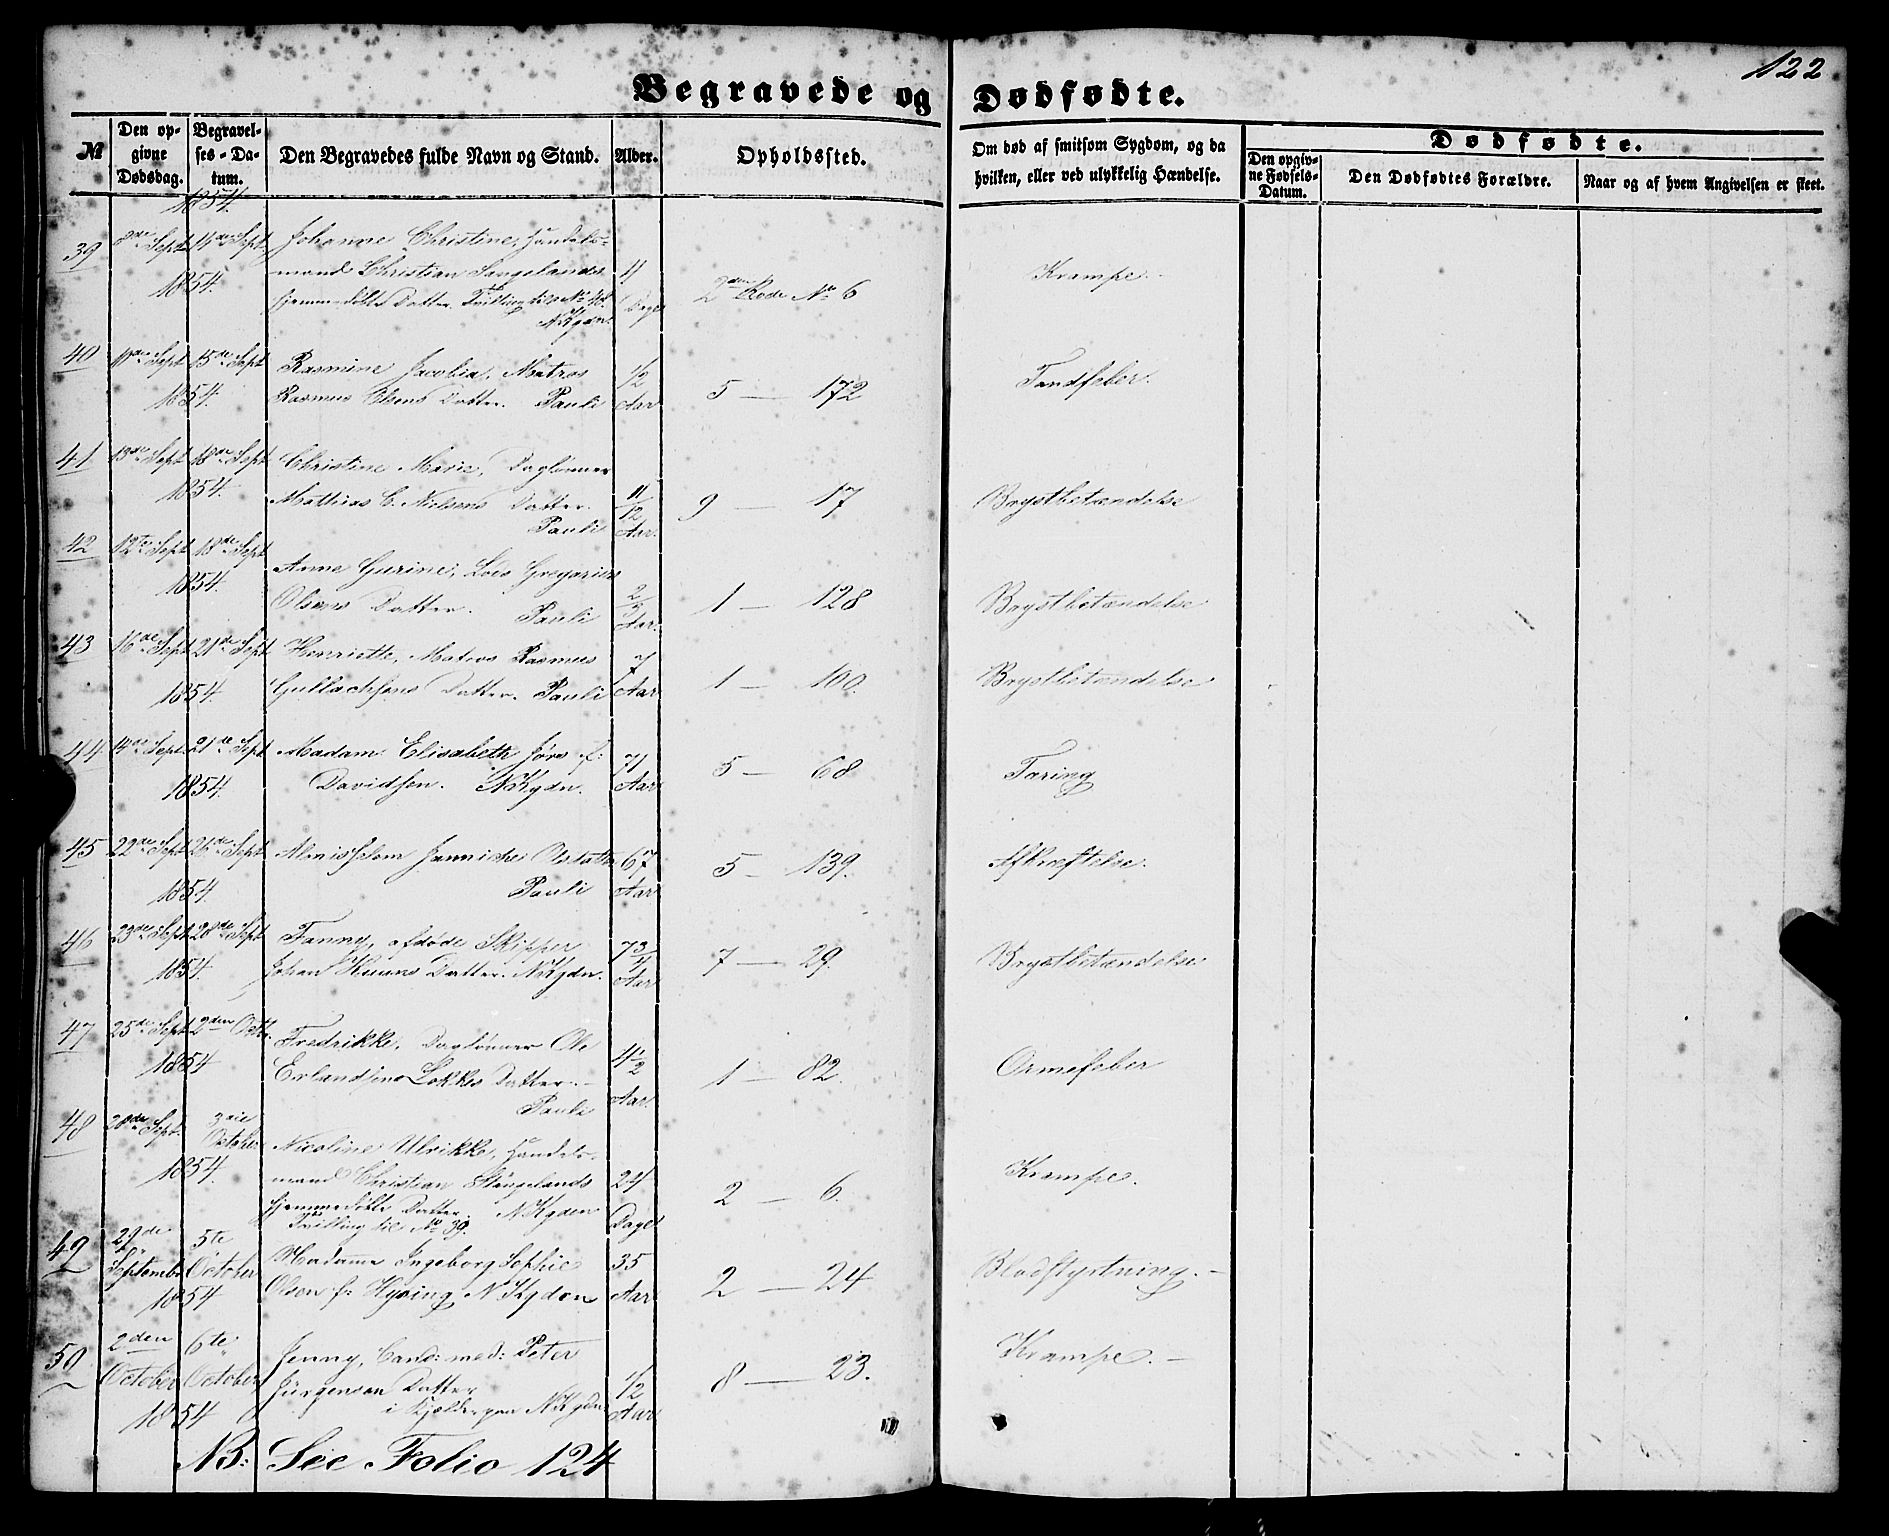 122
Begravede og Dødfødte.
№
Den opgivne Dødsdag.
Begravelses-Datum.
Den Begravedes fulde Navn og Stand.
Alder.
Opholdssted.
Om død af smitsom Sygdom, og da hvilken, eller ved ulykkelig Hændelse.
Dødfødte.
Den opgivne Fødsels-Datum.
Den Dødfødtes Forældre.
Naar og af hvem Angivelsen er skeet.
1854.
39 8de Sept 14de Sept Johanne Christine, Handels-
1854. mand Christian Stangelands 4 Dage 2den Rode No 6 Krampe
hjemmedøbte Datter. Tvilling til No 48.
N Kgdn.
40 11te Sept 15de Sept Rasmine Jacobia, Matros 1/2
1854. Rasmus Olsens Datter. Pauli Aar 5 — 172 Tandfeber.
41 13de Sept 18de Sept Christine Marie, Daglønner
1854. Mathias C. Nielsens Datter. 11/12 9 — 17 Brystbetændelse
Pauli Aar.
42 12te Sept 18de Sept
1854. Anne Gurine, Lods Gregorius
Olsens Datter. Pauli 2/3 Aar. 1 — 128 Brystbetændelse
43 16de Sept 21de Sept Henriette, Matros Rasmus 7
1854. Gullachsens Datter. Pauli Aar 1 — 100. Brystbetændelse
44 14de Sept. 21de Sept Madam Elisabeth f: 71
1854. Davidsen. N Kgdn. Aar 5 — 68 Tæring
45 22de Sept 26de Sept Almisselem Jannicke 67
1854 Pauli Aar 5 — 139. Afkræftelse.
46 23de Sept 28de Sept Fanny, afdøde Skipper 7 3/4
1854. Johan Datter. N Kgdn. Aar 7 — 29. Brystbetændelse
47 25de Sept 2den Octbr. Fredrikke, Daglønner Ole 4 1/2
1854 Erlandsens Datter. Aar. 1 — 82. Ormefeber
Pauli
48 28de Sept. 3die October Nicoline Ulrikke, Handels-
1854. mand Christian Stangelands 24 2 — 6. Krampe.
hjemmedøbte Datter. N Kgden Dage
Tvilling til No 39.
49 29de 5te Madame Ingeborg Sophie 35
Septembr October Olsen f: Hysing N Kgden Aar 2 — 24 Blodstyrtning.
1854
50 2den 6te Jenny, Cand: med: Peter
October October Jürgensen Datter 1/2 8 — 23. Krampe.
1854 i N Kgdn Aar
NB: See Folio 124